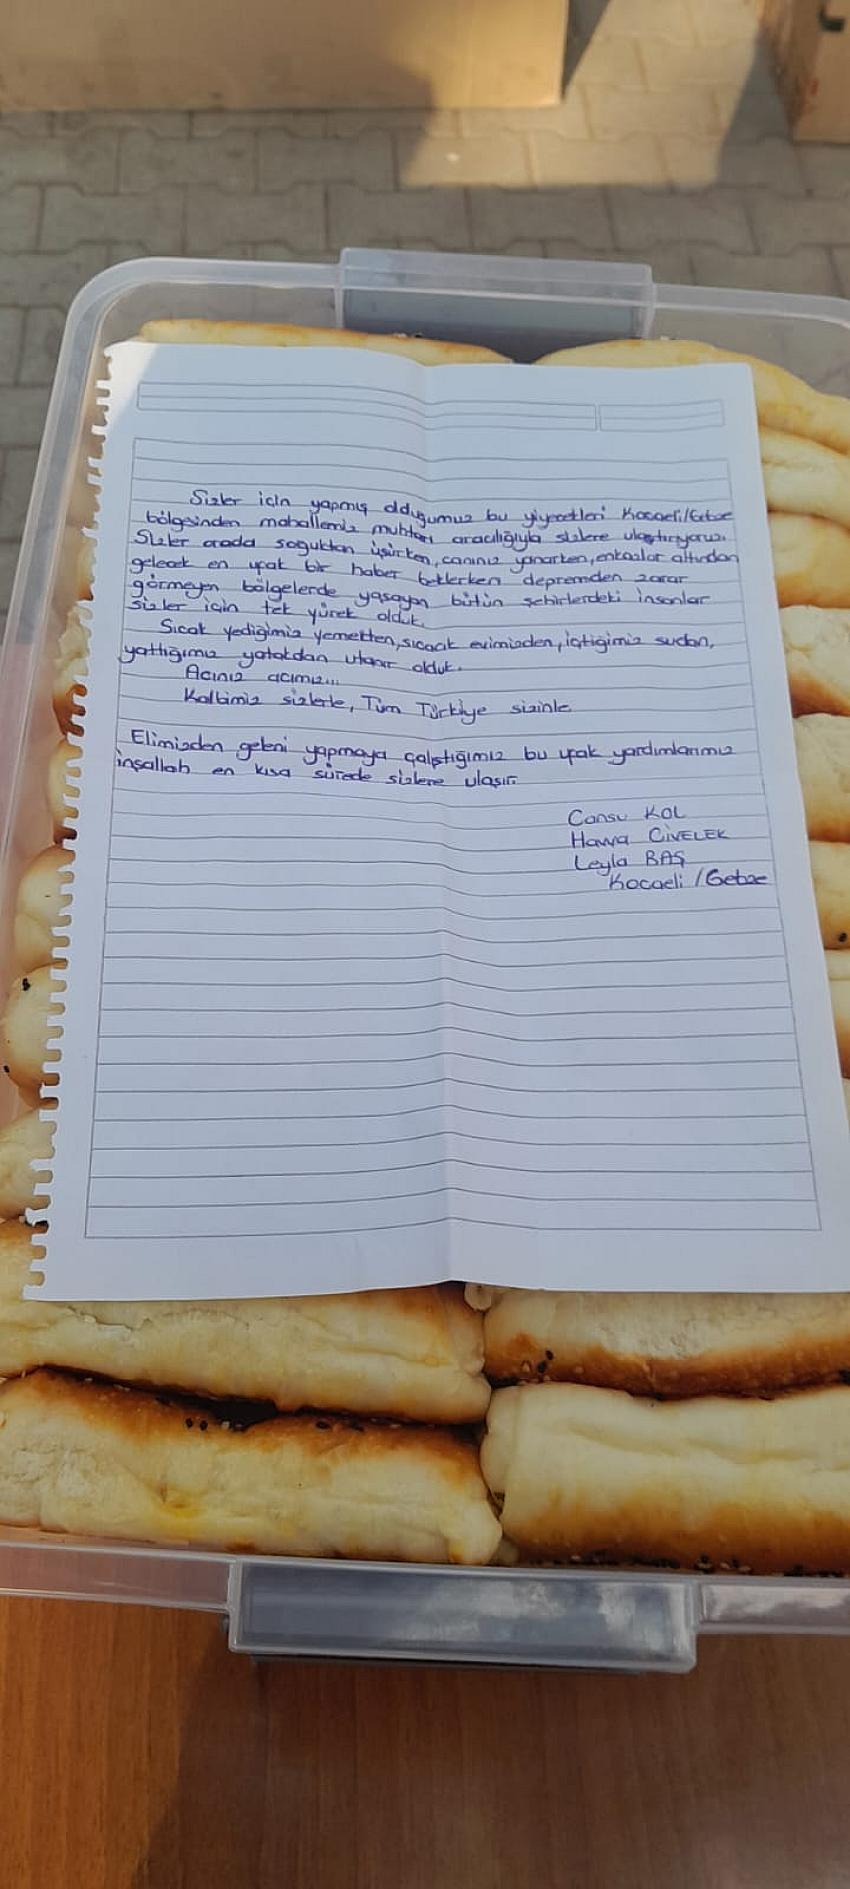 Sizler için yapmış olduğumuz bu yiyecekleri Kocaeli/Gebze
bölgesinden mahallemiz muhtarı aracılığıyla sizlere ulaştırıyoruz.
Sizler orada soğuktan üşürken, canınız yanarken, enkazlar altından
gelecek en ufak bir haber beklerken depremden zarar
görmeyen bölgelerde yaşayan bütün şehirlerdeki insanlar
sizler için tek yürek olduk.
Sıcak yediğimiz yemekten, sıcacık evimizden, içtiğimiz sudan,
yattığımız yataktan utanır olduk.
Acınız acımız...
Kalbimiz sizlerle, Tüm Türkiye sizinle
Elimizden geleni yapmaya çalıştığımız bu ufak yardımlarımız
inşallah en kısa sürede sizlere ulaşır.
Cansu KOL
Havva CİVELEK
Leyla BAŞ
Kocaeli /Gebze